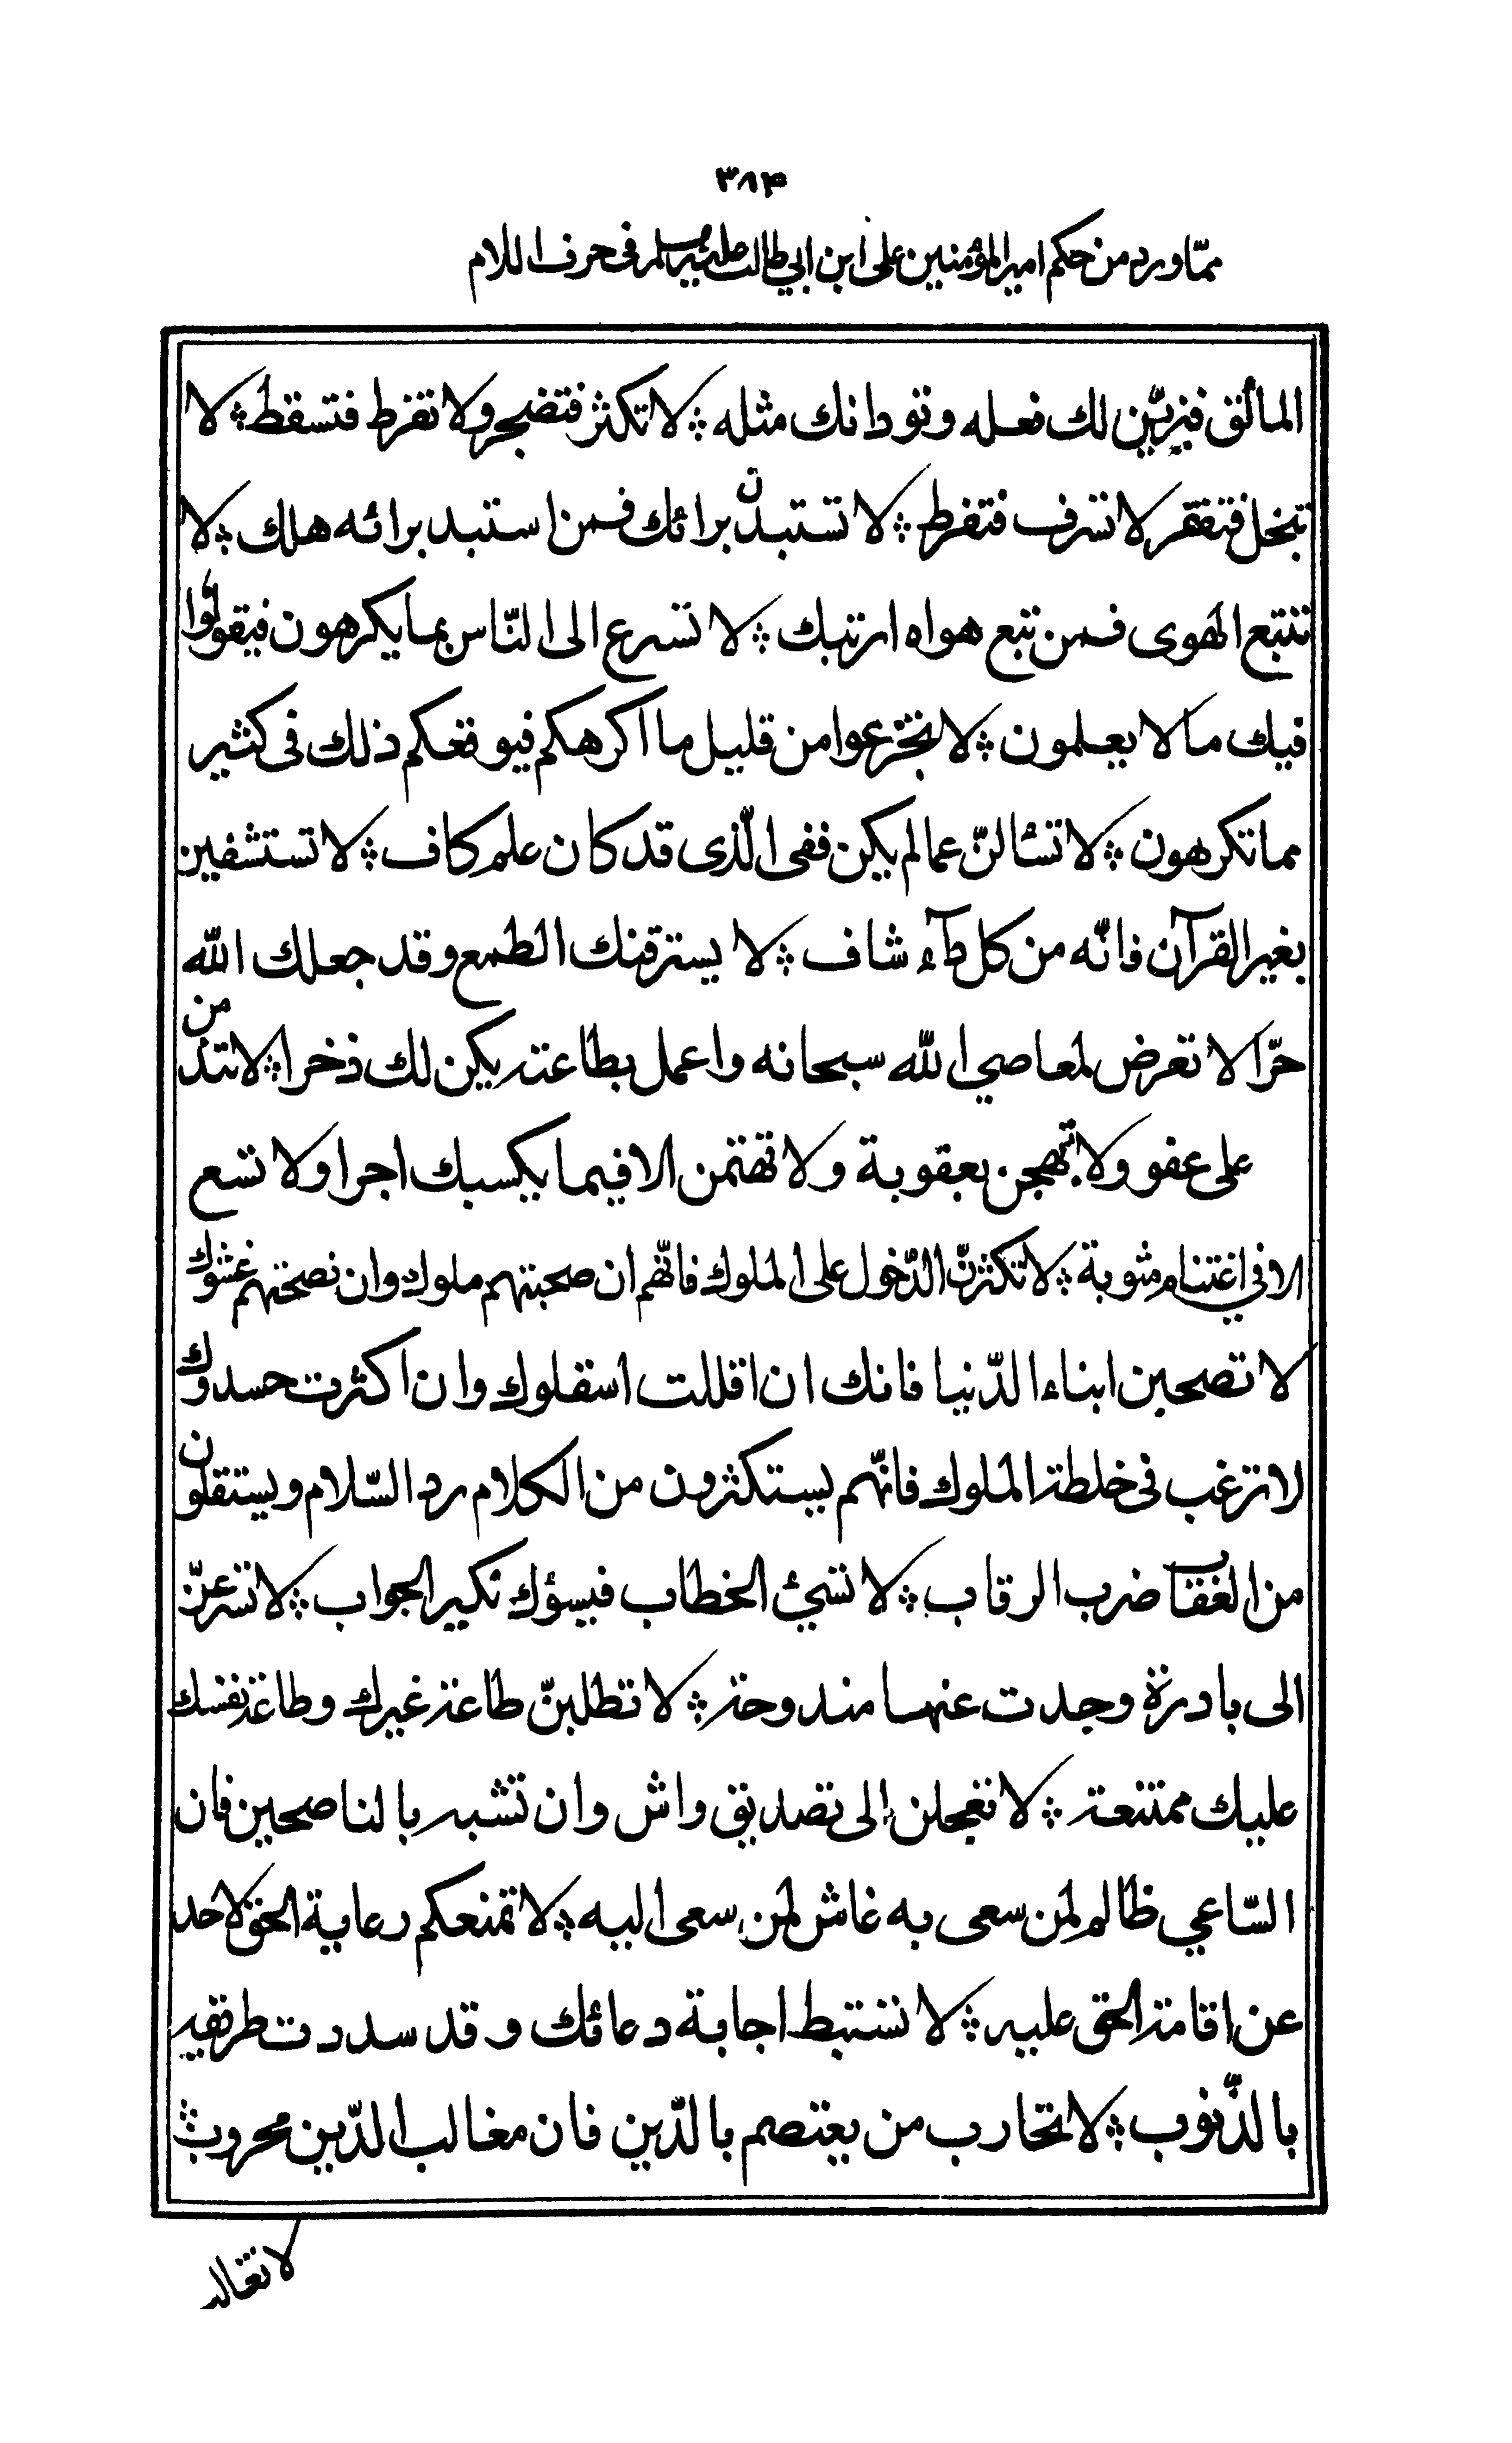 ۳۸۴
ممّا ورد من حكم امير المؤمنين على ابن ابي طالب عليه السلام فى حرف اللام
المائق فيزيّن لك فعله وتود انك مثله ؞ لا تكثر فتضجر ولا تفرط فتسقط ؞ لا
تبخل فتفتقر لا تسرف فتفرط ؞ لا تستبدن برائك فمن استبد برائه هلك ؞ لا
تتبع الهوى فمن تبع هواه ارتبك ؞ لا تسرع الى النّاس بما يكرهون فيقولوا
فيك ما لا يعلمون ؞ لا تجزعوا من قليل ما اكرهكم فيوقعكم ذلك فى كثير
مما تكرهون ؞ لا تسٔالنّ عما لم يكن ففى الّذى قد كان علم كاف ؞ لا تستشفين
بغير القرآن فانّه من كل دآء شاف ؞ لا يسترقنك الطمع وقد جعلك الله
حرّا لا تعرض لمعاصي الله سبحانه واعمل بطاعته يكن لك ذخرا ؞ لا تندمن
على عفو ولا تبهجن بعقوبة ولا تهتمن الا فيما يكسبك اجرا ولا تسع
الا في اغتنام مثوبة ؞ لا تكثرنّ الدّخول على الملوك فانّهم ان صحبتهم ملوك وان نصحتهم غشوك
لا تصحبن ابناء الدّنيا فانك ان اقللت استقلوك وان اكثرت حسدوك
لا ترغب فى خلطة الملوك فانّهم يستكثرون من الكلام رد السّلام ويستقلون
من العقاب ضرب الرقاب ؞ لا تسئ الخطاب فيسؤك نكير الجواب ؞ لا تسرعنّ
الى بادرة وجدت عنها مندوحة ؞ لا تطلبنّ طاعة غيرك وطاعة نفسك
عليك ممتنعة ؞ لا تعجلن الى تصديق واش وان تشبه بالناصحين فان
السّاعي ظالم لمن سعى به غاش لمن سعى اليه ؞ لا تمنعكم رعاية الحق لاحد
عن اقامة الحق عليه ؞ لا تستبط اجابة دعائك وقد سددت طريقه
بالذّنوب ؞ لا تحارب من يعتصم بالدّين فان مغالب الدّين محروب ؞
لا تغالب